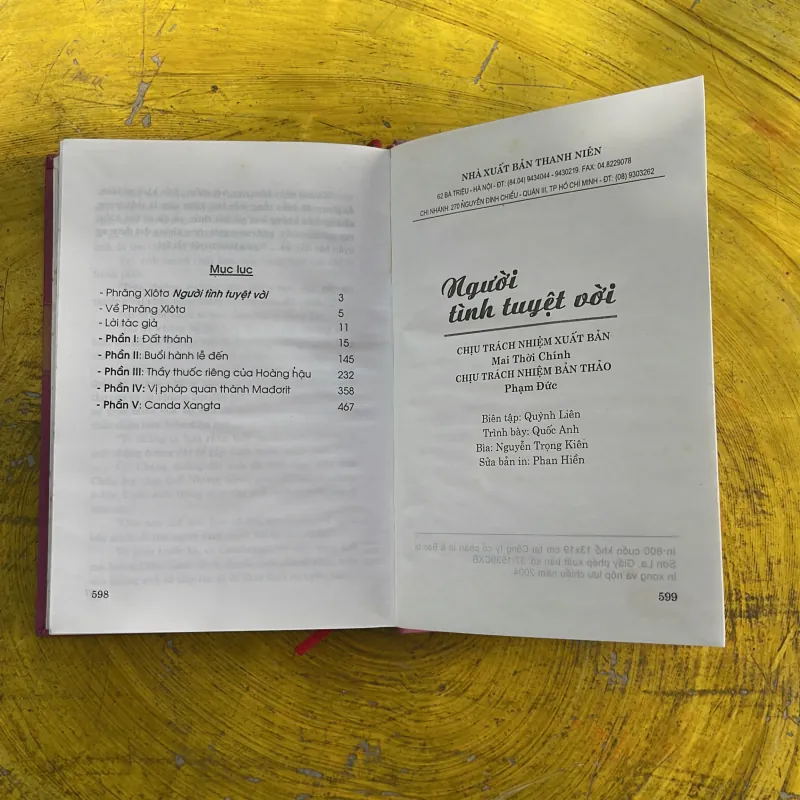 Mục lục
- Phrăng Xlôtơ Người tình tuyệt vời 3
- Về Phrăng Xlôtơ 5
- Lời tác giả 11
- Phần I: Đất thánh 15
- Phần II: Buổi hành lễ đến 145
- Phần III: Thầy thuốc riêng của Hoàng hậu 232
- Phần IV: Vị pháp quan thành Mađơrit 358
- Phần V: Canda Xangta 467
598
NHÀ XUẤT BẢN THANH NIÊN
62 BÀ TRIỆU - HÀ NỘI - ĐT: (84.04) 9434044 - 9430219. FAX: 04.8229078
CHI NHÁNH: 270 NGUYỄN ĐÌNH CHIỂU - QUẬN III, TP HỒ CHÍ MINH - ĐT: (08) 9303262
Người
tình tuyệt vời
CHỊU TRÁCH NHIỆM XUẤT BẢN
Mai Thời Chính
CHỊU TRÁCH NHIỆM BẢN THẢO
Phạm Đức
Biên tập: Quỳnh Liên
Trình bày: Quốc Anh
Bìa: Nguyễn Trọng Kiên
Sửa bản in: Phan Hiền
In 800 cuốn khổ 13x19 cm tại Công ty cổ phần in & Bao bì
Sơn La. Giấy phép xuất bản số
In xong và nộp lưu chiểu năm 2004
599